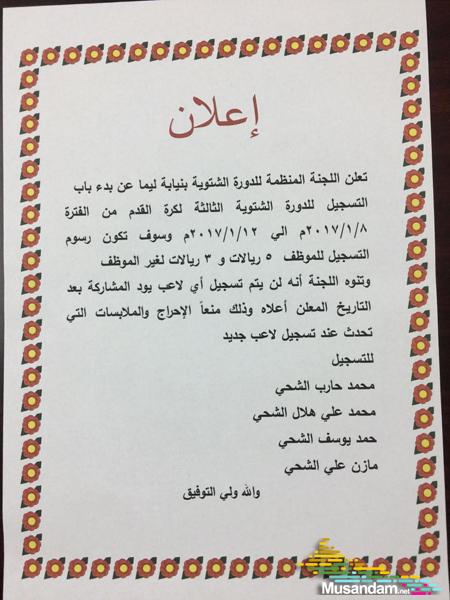 إعلان
تعلن اللجنة المنظمة للدورة الشتوية بنيابة ليما عن بدء باب
التسجيل للدورة الشتوية الثالثة لكرة القدم من الفترة
٢٠١٧/١/٨م الي ٢٠١٧/١/١٢م وسوف تكون رسوم
التسجيل للموظف ٥ ريالات و ٣ ريالات لغير الموظف
وتنوه اللجنة أنه لن يتم تسجيل أي لاعب يود المشاركة بعد
التاريخ المعلن أعلاه وذلك منعاً الإحراج والملابسات التي
تحدث عند تسجيل لاعب جديد
للتسجيل
محمد حارب الشحي
محمد علي هلال الشحي
حمد يوسف الشحي
مازن علي الشحي
والله ولي التوفيق
Musandam.net